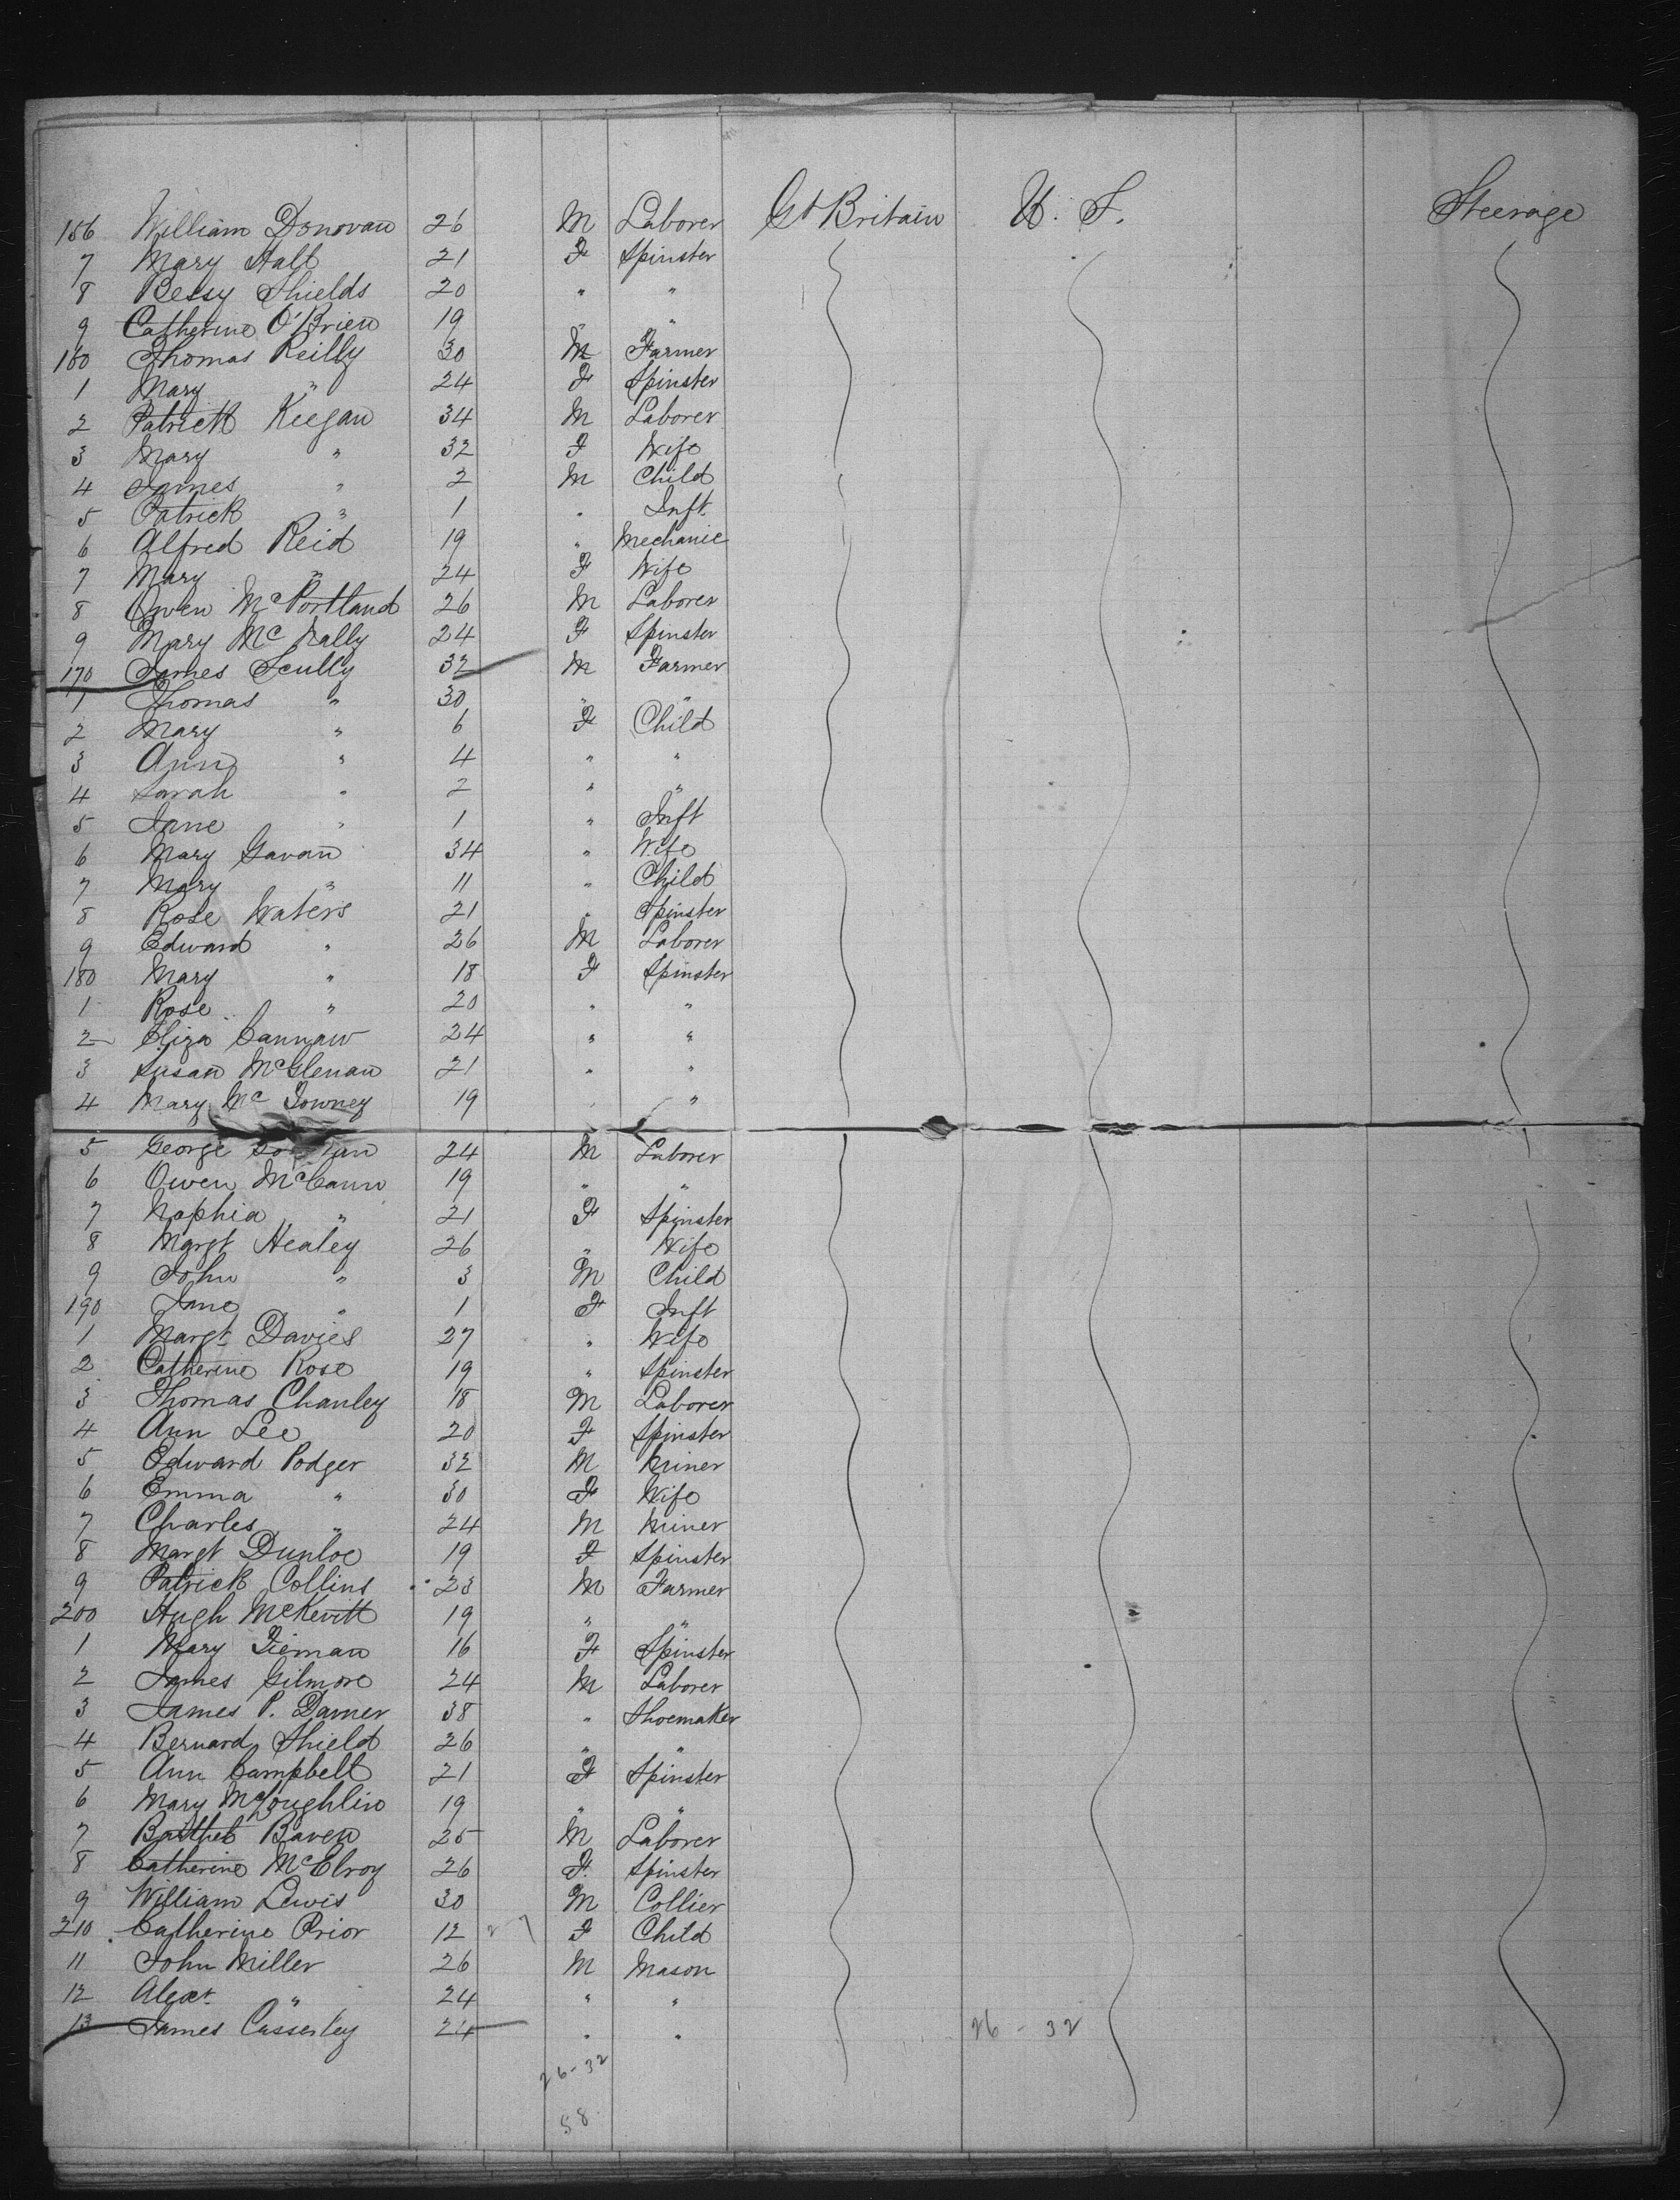 156 William Donovan 26 M Laborer Gt Britain U. S. Steerage
7 Mary Hall 21 F Spinster
8 Bessy Shields 20 " "
9 Catherine O'Brien 19 " "
160 Thomas Reilly 30 M Farmer
1 Mary " 24 F Spinster
2 Patrick Keegan 34 M Laborer
3 Mary " 32 F Wife
4 James " 2 M Child
5 Patrick " 1 " Inft.
6 Alfred Reid 19 " Mechanic
7 Mary " 24 F Wife
8 Owen McPortland 26 M Laborer
9 Mary McNally 24 F Spinster
170 James Scully 32 M Farmer
1 Thomas " 30 " "
2 Mary " 6 F Child
3 Ann " 4 " "
4 Sarah " 2 " "
5 Jane " 1 " Inft
6 Mary Gavan 34 " Wife
7 Mary " 11 " Child
8 Rose Waters 21 " Spinster
9 Edward " 26 M Laborer
180 Mary " 18 F Spinster
1 Rose " 20 " "
2 Eliza 24 " "
3 Susan McGlenan 21 " "
4 Mary Mc 19 " "
5 George 24 M Laborer
6 Owen McCann 19 " "
7 Sophia " 21 F Spinster
8 Margt Healey 26 " Wife
9 John " 3 M Child
190 Jane " 1 F Inft
1 Margt Davies 27 " Wife
2 Catherine Rose 19 " Spinster
3 Thomas Chanley 18 M Laborer
4 Ann Lee 20 F Spinster
5 Edward Podger 32 M Miner
6 Emma " 30 F Wife
7 Charles " 24 M Miner
8 Margt Dunloe 19 F Spinster
9 Patrick Collins 23 M Farmer
200 Hugh McKevitt 19 " "
1 Mary Tiernan 16 F Spinster
2 James Gilmore 24 M Laborer
3 James P. Damer 38 " Shoemaker
4 Bernard Shield 26 " "
5 Ann Campbell 21 F Spinster
6 Mary McLoughlin 19 " "
7 Baven 25 M Laborer
8 Catherine McElroy 26 F Spinster
9 William Lewis 30 M Collier
210 Catherine Prior 12 F Child
11 John Miller 26 M Mason
12 Alexr " 24 " "
13 James Casserley 24 " "
26 - 32
26-32
58